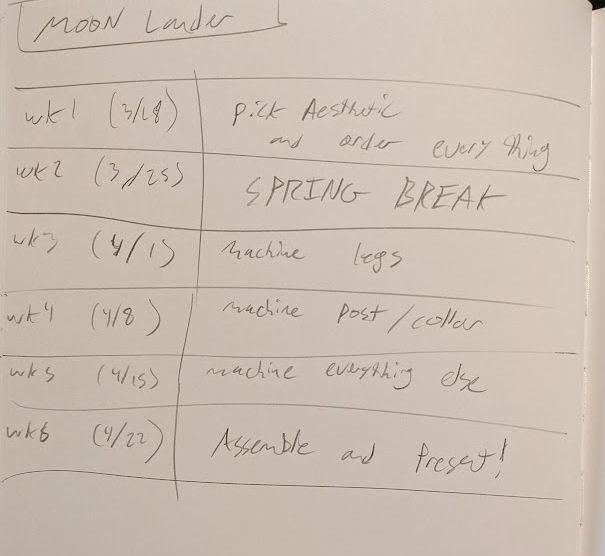 MOON Lander
wk1 (3/18) pick Aesthetic
and order everything
wk2 (3/25) SPRING BREAK
wk3 (4/1) machine legs
wk4 (4/8) machine post/collar
wk5 (4/15) machine everything else
wk6 (4/22) Assemble and Present!